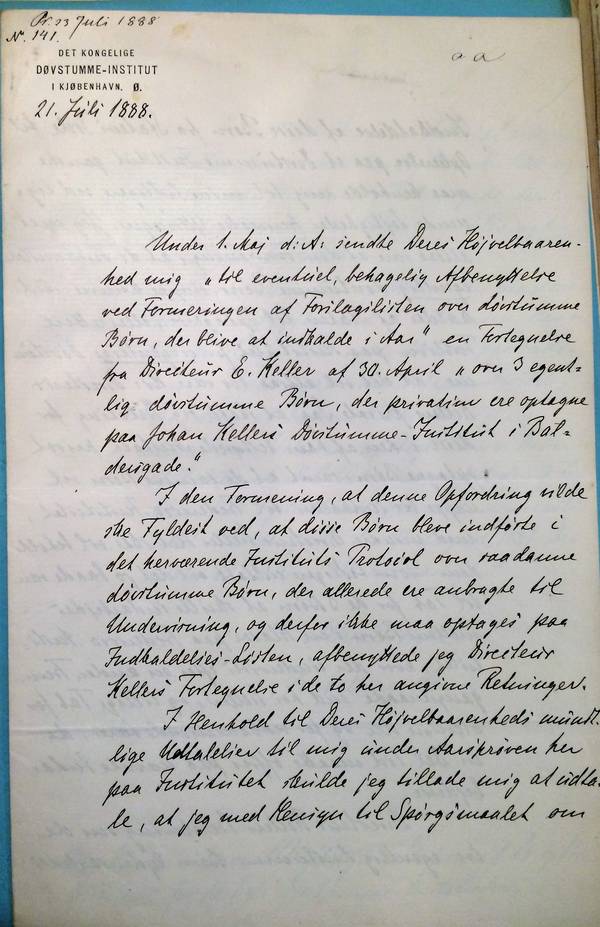 Pr. 23 Juli 1888
Nr. 141.
DET KONGELIGE
DØVSTUMME-INSTITUT
I KJØBENHAVN. Ø.
21. Juli 1888.
Under 1. Maj d: A: sendte Deres Højvelbaaren-
hed mig „til eventuel, behagelig Afbenyttelse
ved Formeringen af Forslagslisten over døvstumme
Børn, der blive at indkalde i Aar" en Fortegnelse
fra Directeur E. Keller af 30. April „over 3 egent-
lig døvstumme Børn, der privatim ere optagne
paa Johan Kellers Døvstumme-Institut i Bal-
dersgade."
I den Formening, at denne Opfordring vilde
ske Fyldest ved, at disse Børn bleve indførte i
det herværende Instituts Protocol over saadanne
døvstumme Børn, der allerede ere anbragte til
Undervisning, og derfor ikke maa optages paa
Indkaldelses-Listen, afbenyttede jeg Directeur
Kellers Fortegnelse i de to her angivne Retninger.
I Henhold til Deres Højvelbaarenheds mundt-
lige Udtalelser til mig under Aarsprøven her
paa Institutet skulde jeg tillade mig at udta-
le, at jeg med Hensyn til Spørgsmaalet om